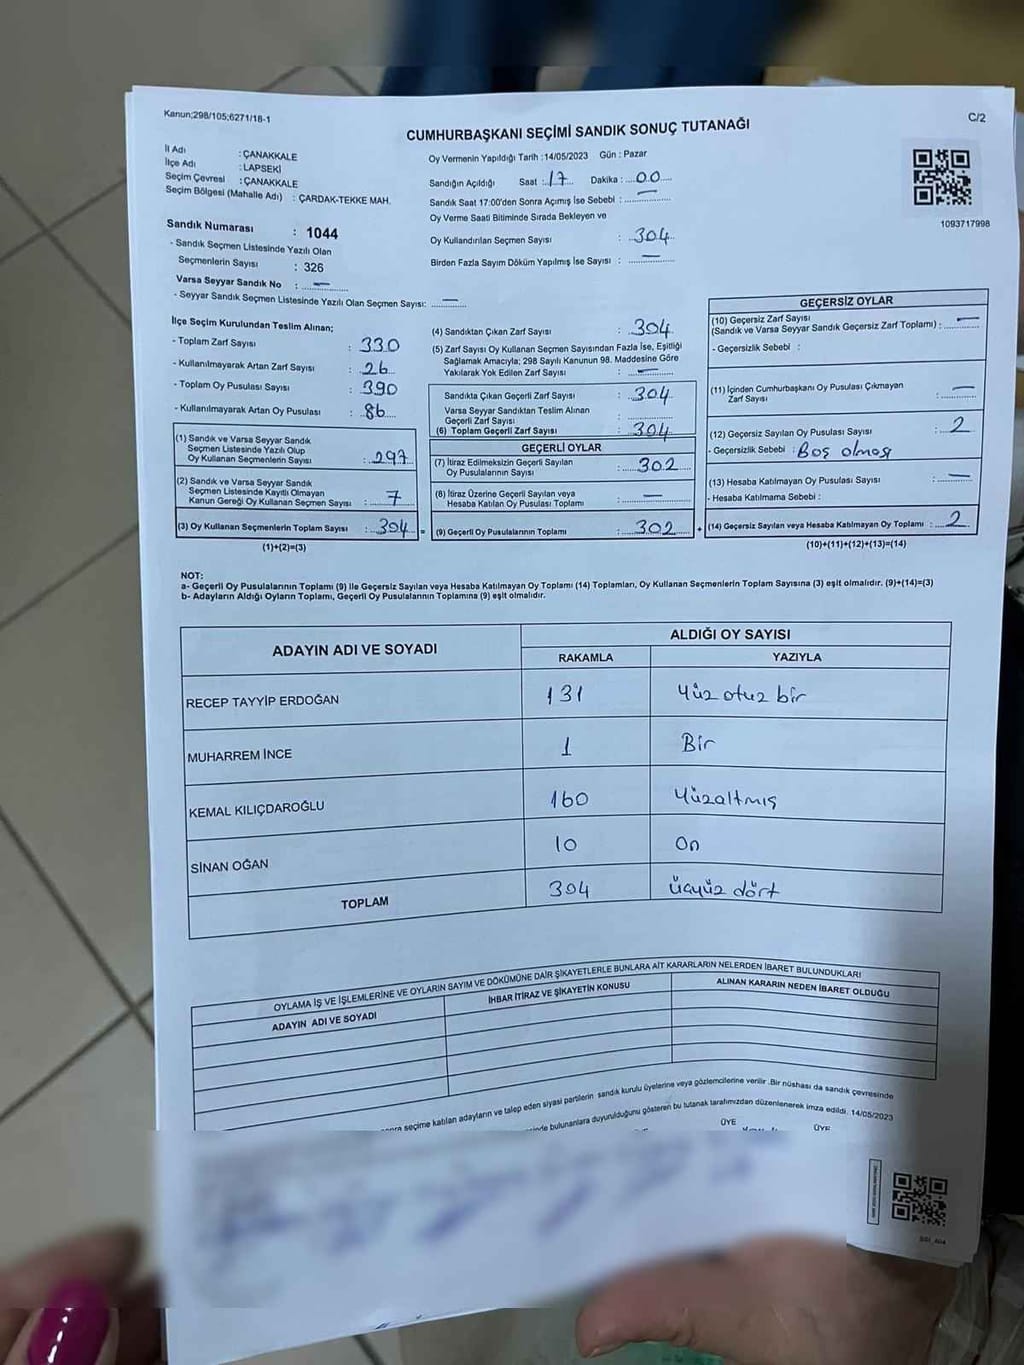 Kanun;298/105;6271/18-1
C/2
CUMHURBAŞKANI SEÇİMİ SANDIK SONUÇ TUTANAĞI
İl Adı : ÇANAKKALE
İlçe Adı : LAPSEKİ
Seçim Çevresi : ÇANAKKALE
Seçim Bölgesi (Mahalle Adı) : ÇARDAK-TEKKE MAH.
Sandık Numarası : 1044
- Sandık Seçmen Listesinde Yazılı Olan
Seçmenlerin Sayısı : 326
Varsa Seyyar Sandık No : —
- Seyyar Sandık Seçmen Listesinde Yazılı Olan Seçmen Sayısı: —
Oy Vermenin Yapıldığı Tarih :14/05/2023 Gün : Pazar
Sandığın Açıldığı Saat :17 Dakika :00
Sandık Saat 17:00'den Sonra Açımış İse Sebebi : —
Oy Verme Saati Bitiminde Sırada Bekleyen ve
Oy Kullandırılan Seçmen Sayısı : 304
Birden Fazla Sayım Döküm Yapılmış İse Sayısı : —
1093717998
İlçe Seçim Kurulundan Teslim Alınan;
- Toplam Zarf Sayısı : 330
- Kullanılmayarak Artan Zarf Sayısı : 26
- Toplam Oy Pusulası Sayısı : 390
- Kullanılmayarak Artan Oy Pusulası : 86
(1) Sandık ve Varsa Seyyar Sandık
Seçmen Listesinde Yazılı Olup
Oy Kullanan Seçmenlerin Sayısı : 297
(2) Sandık ve Varsa Seyyar Sandık
Seçmen Listesinde Kayıtlı Olmayan
Kanun Gereği Oy Kullanan Seçmen Sayısı : 7
(3) Oy Kullanan Seçmenlerin Toplam Sayısı : 304 =
(1)+(2)=(3)
(4) Sandıktan Çıkan Zarf Sayısı : 304
(5) Zarf Sayısı Oy Kullanan Seçmen Sayısından Fazla İse, Eşitliği
Sağlamak Amacıyla; 298 Sayılı Kanunun 98. Maddesine Göre
Yakılarak Yok Edilen Zarf Sayısı : —
Sandıkta Çıkan Geçerli Zarf Sayısı : 304
Varsa Seyyar Sandıktan Teslim Alınan
Geçerli Zarf Sayısı :
(6) Toplam Geçerli Zarf Sayısı : 304
GEÇERLİ OYLAR
(7) İtiraz Edilmeksizin Geçerli Sayılan
Oy Pusulalarının Sayısı : 302
(8) İtiraz Üzerine Geçerli Sayılan veya
Hesaba Katılan Oy Pusulası Toplamı : —
(9) Geçerli Oy Pusulalarının Toplamı : 302 +
GEÇERSİZ OYLAR
(10) Geçersiz Zarf Sayısı
(Sandık ve Varsa Seyyar Sandık Geçersiz Zarf Toplamı) : —
- Geçersizlik Sebebi :
(11) İçinden Cumhurbaşkanı Oy Pusulası Çıkmayan
Zarf Sayısı : —
(12) Geçersiz Sayılan Oy Pusulası Sayısı : 2
- Geçersizlik Sebebi : Boş olması
(13) Hesaba Katılmayan Oy Pusulası Sayısı : —
- Hesaba Katılmama Sebebi :
(14) Geçersiz Sayılan veya Hesaba Katılmayan Oy Toplamı : 2
(10)+(11)+(12)+(13)=(14)
NOT:
a- Geçerli Oy Pusulalarının Toplamı (9) ile Geçersiz Sayılan veya Hesaba Katılmayan Oy Toplamı (14) Toplamları, Oy Kullanan Seçmenlerin Toplam Sayısına (3) eşit olmalıdır. (9)+(14)=(3)
b- Adayların Aldığı Oyların Toplamı, Geçerli Oy Pusulalarının Toplamına (9) eşit olmalıdır.
ADAYIN ADI VE SOYADI ALDIĞI OY SAYISI
RAKAMLA YAZIYLA
RECEP TAYYİP ERDOĞAN 131 Yüz otuz bir
MUHARREM İNCE 1 Bir
KEMAL KILIÇDAROĞLU 160 Yüzaltmış
SİNAN OĞAN 10 On
TOPLAM 304 üçyüz dört
OYLAMA İŞ VE İŞLEMLERİNE VE OYLARIN SAYIM VE DÖKÜMÜNE DAİR ŞİKAYETLERLE BUNLARA AİT KARARLARIN NELERDEN İBARET BULUNDUKLARI
ADAYIN ADI VE SOYADI İHBAR İTİRAZ VE ŞİKAYETİN KONUSU ALINAN KARARIN NEDEN İBARET OLDUĞU
seçime katılan adayların ve talep eden siyasi partilerin sandık kurulu üyelerine veya gözlemcilerine verilir .Bir nüshası da sandık çevresinde
bulunanlara duyurulduğunu gösteren bu tutanak tarafımızdan düzenlenerek imza edildi. 14/05/2023
ÜYE ÜYE